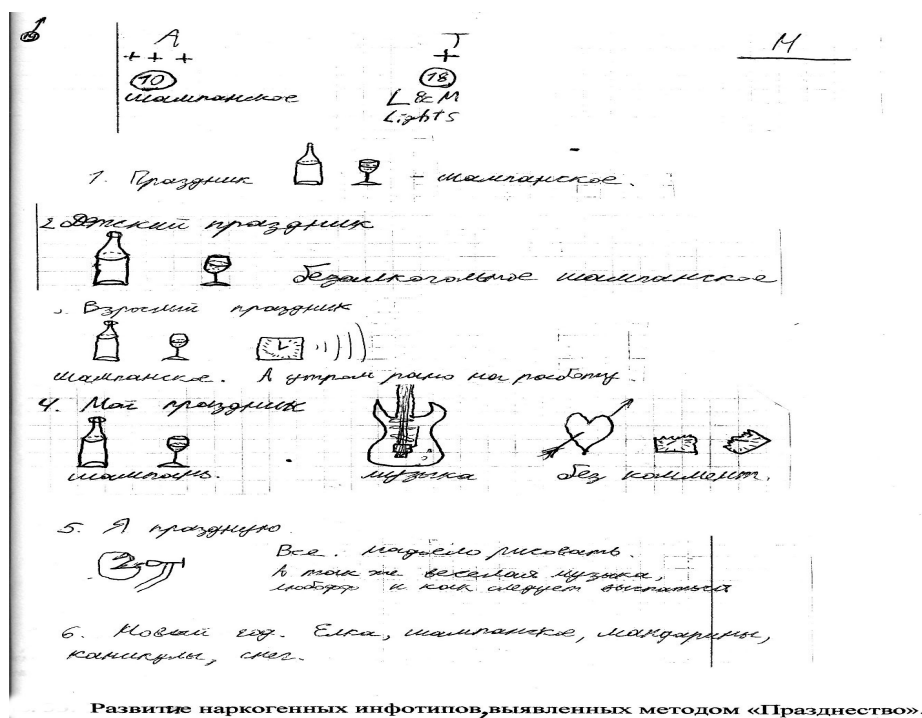 А Т М
+ + + +
10 18
шампанское L & M
Lights
1. Праздник – шампанское.
2. Детский праздник
безалкогольное шампанское
3. Взрослый праздник
шампанское. А утром рано на работу
4. Мой праздник
шампань. музыка без коммент.
5. Я праздную.
Все. Надоело рисовать.
А так же веселая музыка,
и как следует выспаться
6. Новый год. Елка, шампанское, мандарины,
каникулы, снег.
Развитие наркогенных инфотипов, выявленных методом «Празднество».